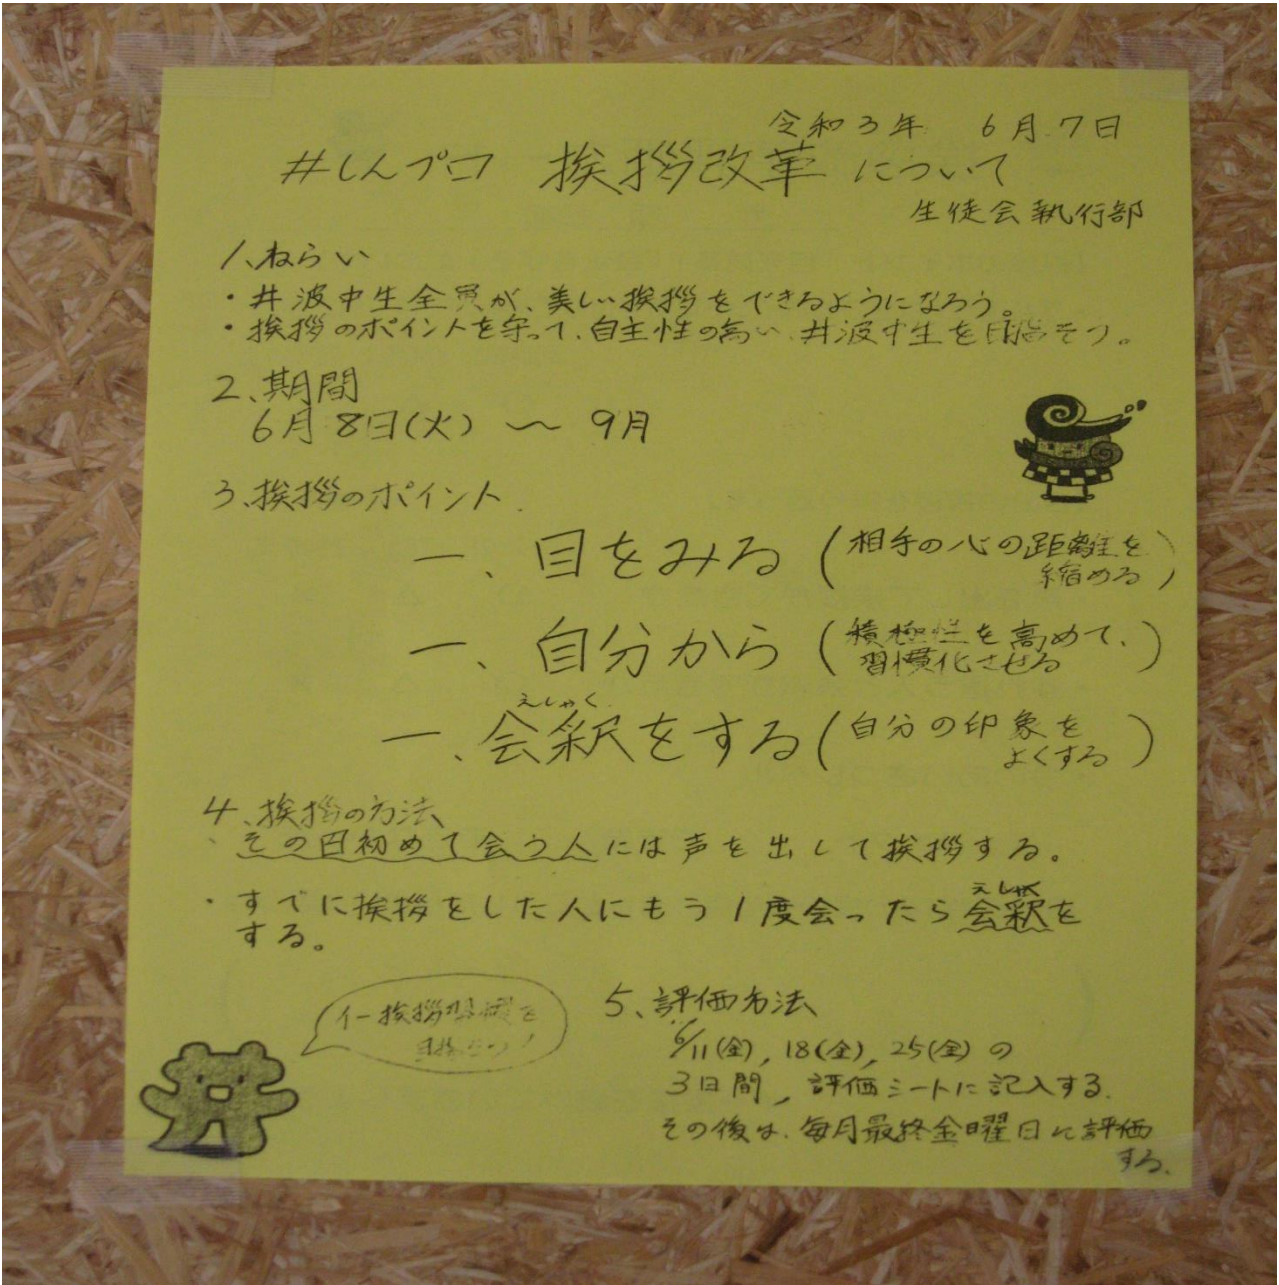 令和3年 6月7日
#しんプロ 挨拶改革 について
生徒会執行部
1、ねらい
・井波中生全員が、美しい挨拶をできるようになろう。
・挨拶のポイントを守って、自主性の高い、井波中生を目指そう。
2、期間
6月8日(火) 〜 9月
3、挨拶のポイント
一、目をみる (相手の心の距離を
縮める)
一、自分から (積極性を高めて、
習慣化させる)
えしゃく
一、会釈をする (自分の印象を
よくする)
4、挨拶の方法
・その日初めて会う人には声を出して挨拶する。
えしゃく
・すでに挨拶をした人にもう1度会ったら会釈を
する。
5、評価方法
6/11(金), 18(金), 25(金) の
3日間, 評価シートに記入する.
その後は、毎月最終金曜日に評価
する、
イー挨拶習慣を
目指そう!